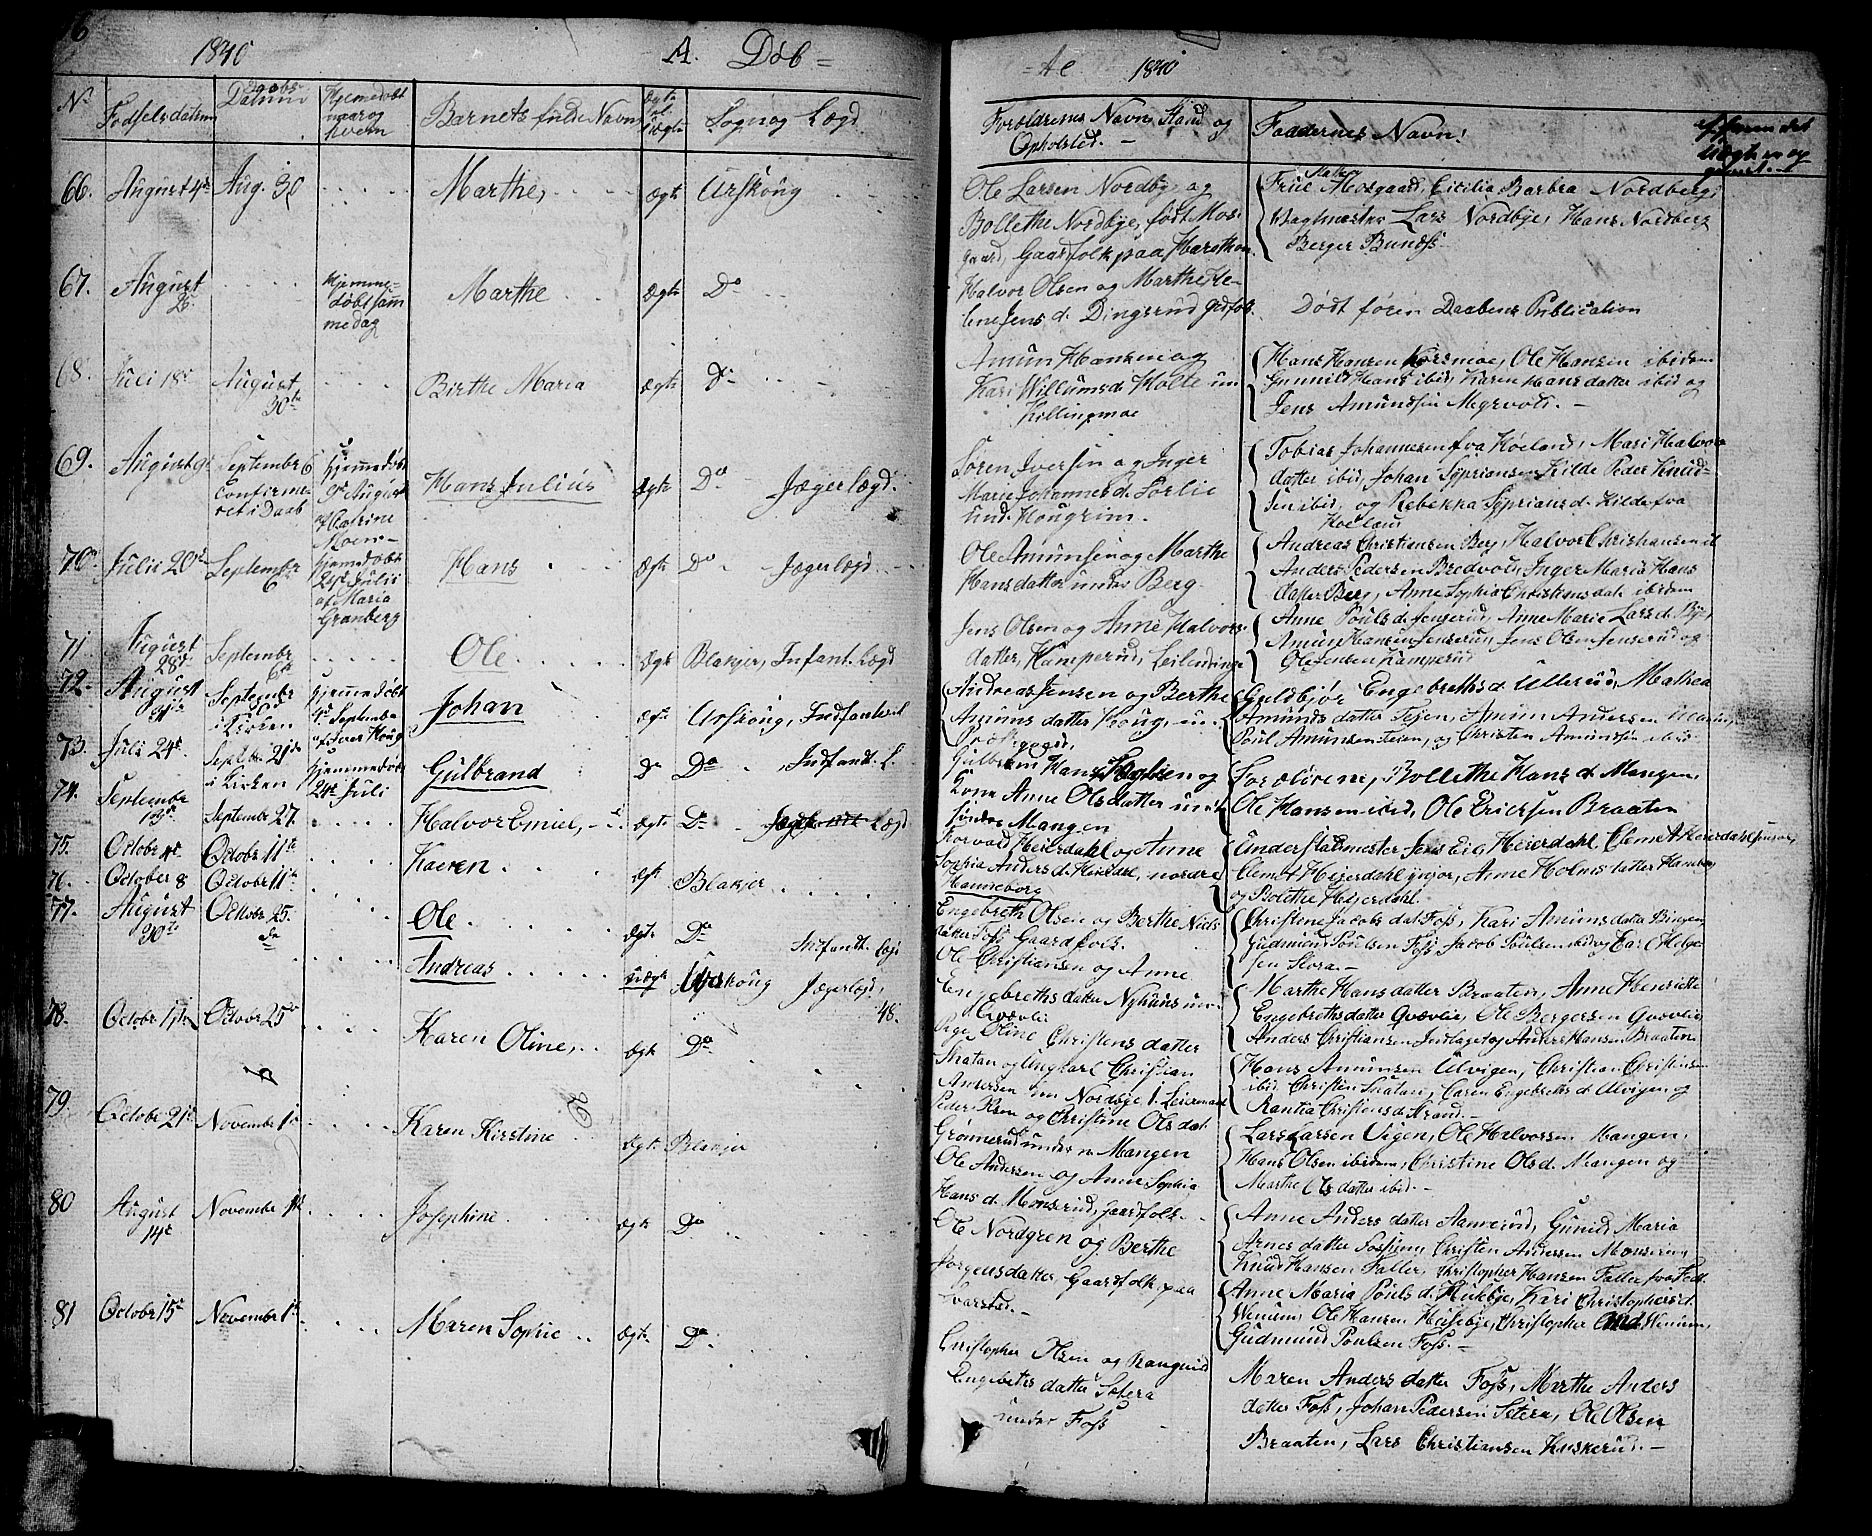 6
1840
A. Døb=
N.
Fødselsdatum
Daabs-
Datum
Hjemmedøbt
naar og
hvem
Barnets fulde Navn
Ægte
el.
Uægte
Sogn og Lægd
66. August 4de Aug. 30 Marthe, ægte Urskoug
67. August
26
Hjemme-
døbt sam-
me dag
Marthe Ægte Do
68. Juli 18de August
30te
Birthe Maria ægte Do
69. August 9de September 6
Confirme-
ret i Daab
hjemmedøbt
9de August
af Catrine
Moen
Hans Julius ægte Do Jægerlægd.
70. Julii 20de September
6
hjemmedøbt
21de Julii
af Maria
Granberg
Hans ægte Do Jægerlægd
71 August
28de
September
6te
Ole ægte Blakjer, Infant. Lægd
72. August
31te
September
6te
i Kirken
hjemmedøbt
4de Septembr
af Iver Houg
Johan ægte Urskoug, Indfanteril
73. Juli 24de Septbr. 21de
i Kirken
hjemmedøbt
24de Juli
Gulbrand Do Do Indfant. L.
74. September
19de
September 27. Halvor Emiel, ægte Do Lægd
75. October 4de October 11te Karen ægte Blakjer
76. October 8 October 11te Ole ægte Do Infant. Lægd
77. August
30te
October 25.
Andreas uægte Urskoug Jægerlægd,
48.
78. October 17de October 25de Karen Oline, ægte Do
79. October 21de November 1ste Karen Kirstine Ægte Blakjer
80 August
14de
November 1ste Josephine ægte Do
81 October 15de November 1ste Maren Sophie ægte Do
=te 1840
Forældrenes Navn, Stand og
Opholsted. -
Faddernes Navn!
Ole Larsen Nordbye og
Bollethe Nordbye, født Mos-
gaard, Gaardfolk paa Harethon
Frue Mosgaard, Cicilia Barbra Nordberg,
Wagtmester Lars Nordbye, Hans Nordberg
Berger Bundss
Halvor Olsen og Marthe He-
lene Jens d. Dingsrud Gdfolk.
Dødt føren Daabens Publication
Amun Hansen og
Kari Willumsd. Holte un
Killingmoe
Hans Hansen Korsmoe, Ole Hansen ibidem
Gunnild Hans ibid, Karen Hansdatter ibid og
Jens Amundsen Megrvold. -
Søren Iversen og Inger
Marie Johannesd. Sorlie
und. Hougrim.
Tobias Johannesen fra Høeland, Mari Halvors
datter ibid, Johan Syprians en Kilde Peder Knud-
sen ibid, og Rebekka Syprians d. Kilde fra
Høeland
Ole Amunsen og Marthe
Hansdatter under Berg
Andreas Christiansen Berg, Halvor Christiansen ib
Anders Pedersen Bredvold, Inger Maria Hans
datter Berg, Anne Sophia Christensdatt. ibidem
Jens Olsen og Anne Halvors-
datter, Kamperud, Leilendinge
Anne Pouls d. Jenserud, Anne Marie Lars d. Bye,
Amun Hansen Jenserud, Jens Olsen Jenserud og
Ole Jensen Kamperud
Andreas Jensen og Berthe
Amunsdatter Houg, un-
Præstegaard,
Guldbjør Engebrethsd. Ullerud, Mathea
Amunds datter Teien, Amun Andersen
Poul Amunsen Teien, og Christen Amundsen ibid.
Gulbran Hans og
Kone Anne Olsdatter und.
søndre Mangen
Forældrene, Bollethe Hans d. Mangen,
Ole Hansen ibid, Ole Ericksen Braaten
Torvald Heierdahl og Anne
Sophia Anders d. Heierdahl, nordre
Hanneborg
Understadmester Jens Eig Heierdahl, Clemet Heierdahl Junior,
Clemet Heierdahl ynjor, Anne Holms datter Hanneborg
og Bolethe Heierdahl.
Engebreth Olsen og Berthe Niels
datter Foss, Gaardfolk.
Christene Jacobs dat Foss, Kari Amuns datter Bingen,
Gudmund Poulsen Foss, Jacob Poulsen ibid og Carl Helge-
sen Stora. -
Ole Christiansen og Anne
Engebrethsdatter Nyhuus un-
Qvævlie
Marthe Hans datter Braaten, Anne Henriette
Engebrethsdatter Qvævlie, Ole Bergersen Qvævlie
Anders Christiansen Indlaget og Anders Hansen Braaten.
Pige Oline Christens datter
Snatan og Ungkarl Christian
Andersen un Nordbye 1. Leiermaal
Hans Amunsen Ulvigen, Christian Christensen
ibid, Christen Snatan, Caren Engebreths d. Ulvigen og
Rantia Christens d. Strand. -
Peder Olsen og Christine Olsdat.
Grønnerud under n Mangen
Lars Larsen Vigen, Ole Halvorsen Mangen,
Hans Olsen ibidem, Christine Ols d. Mangen og
Marthe Ols datter ibid. -
Ole Andersen og Anne Sophia
Hans d. Monsrud, Gaardfolk. -
Anne Anders datter Aannerud, Gunild Maria
Arnes datter Fossum, Christen Andersen Monserud,
Knud Hansen Faller, Christopher Hansen Faller fra Fedt
Ole Nordgren og Berthe
Jørgensdatter, Gaardfolk paa
Svarstad. -
Anne Maria Pouls d. Husebye, Kari Christophers d.
Wenum, Ole Hansen Husebye, Christopher And. Wenum,
Gudmund Poulsen Foss. -
Christopher Olsen og Rangnild
Engebrets datter Setera
under Foss
Maren Anders datter Foss, Marthe Anders
datter Foss, Johan Pedersen Setera, Ole Olsen
Braaten, Lars Christiansen Huskerud. -